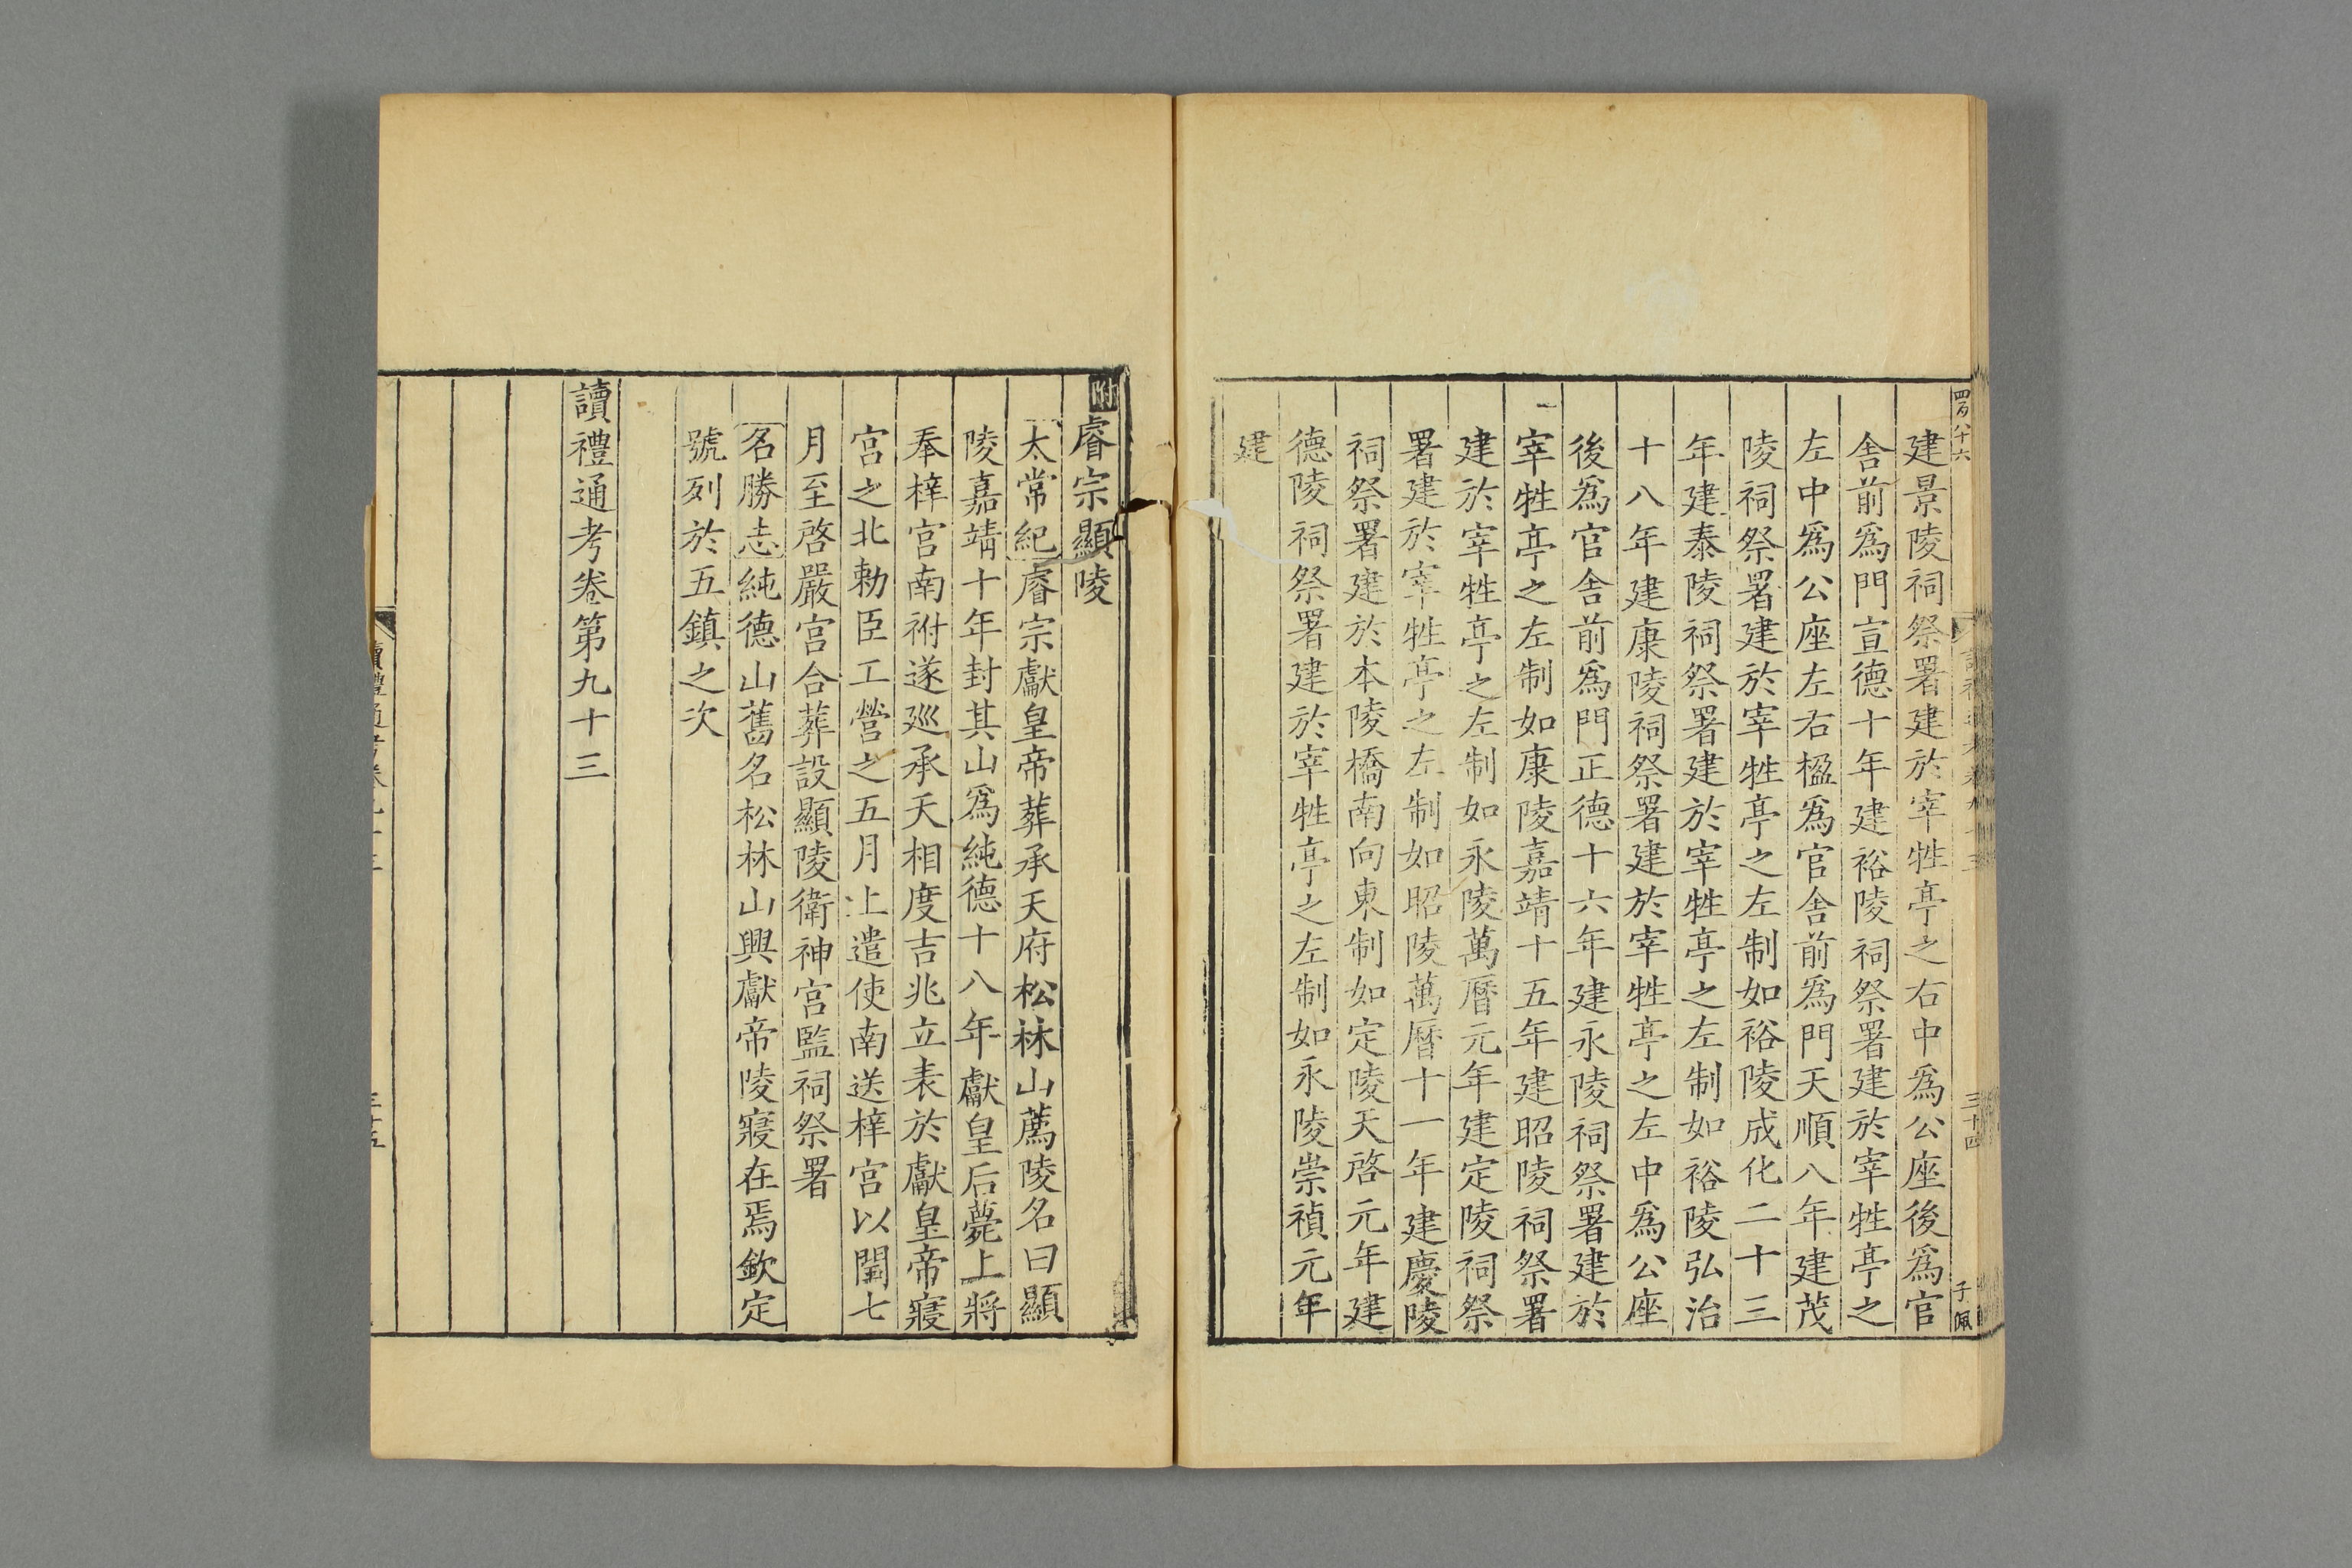 四百八十六
三十四
子佩
建景陵祠祭署建於宰牲亭之右中爲公座後爲官
舍前爲門宣德十年建裕陵祠祭署建於宰牲亭之
左中爲公座左右楹爲官舍前爲門天順八年建茂
陵祠祭署建於宰牲亭之左制如裕陵成化二十三
年建泰陵祠祭署建於宰牲亭之左制如裕陵弘治
十八年建康陵祠祭署建於宰牲亭之左中爲公座
後爲官舍前爲門正德十六年建永陵祠祭署建於
宰牲亭之左制如康陵嘉靖十五年建昭陵祠祭署
建於宰牲亭之左制如永陵萬曆元年建定陵祠祭
署建於宰牲亭之左制如昭陵萬曆十一年建慶陵
祠祭署建於本陵橋南向東制如定陵天啓元年建
德陵祠祭署建於宰牲亭之左制如永陵崇禎元年
建
附睿宗顯陵
太常紀睿宗獻皇帝葬承天府松林山薦陵名曰顯
陵嘉靖十年封其山爲純德十八年獻皇后薨上將
奉梓宮南祔遂廵承天相度吉兆立表於獻皇帝寢
宮之北勅臣工營之五月上遣使南送梓宮以閏七
月至啓嚴宮合葬設顯陵衛神宮監祠祭署
名勝志純德山舊名松林山興獻帝陵寢在焉欽定
號列於五鎮之次
讀禮通考卷第九十三
讀禮通考卷九十三
三十五